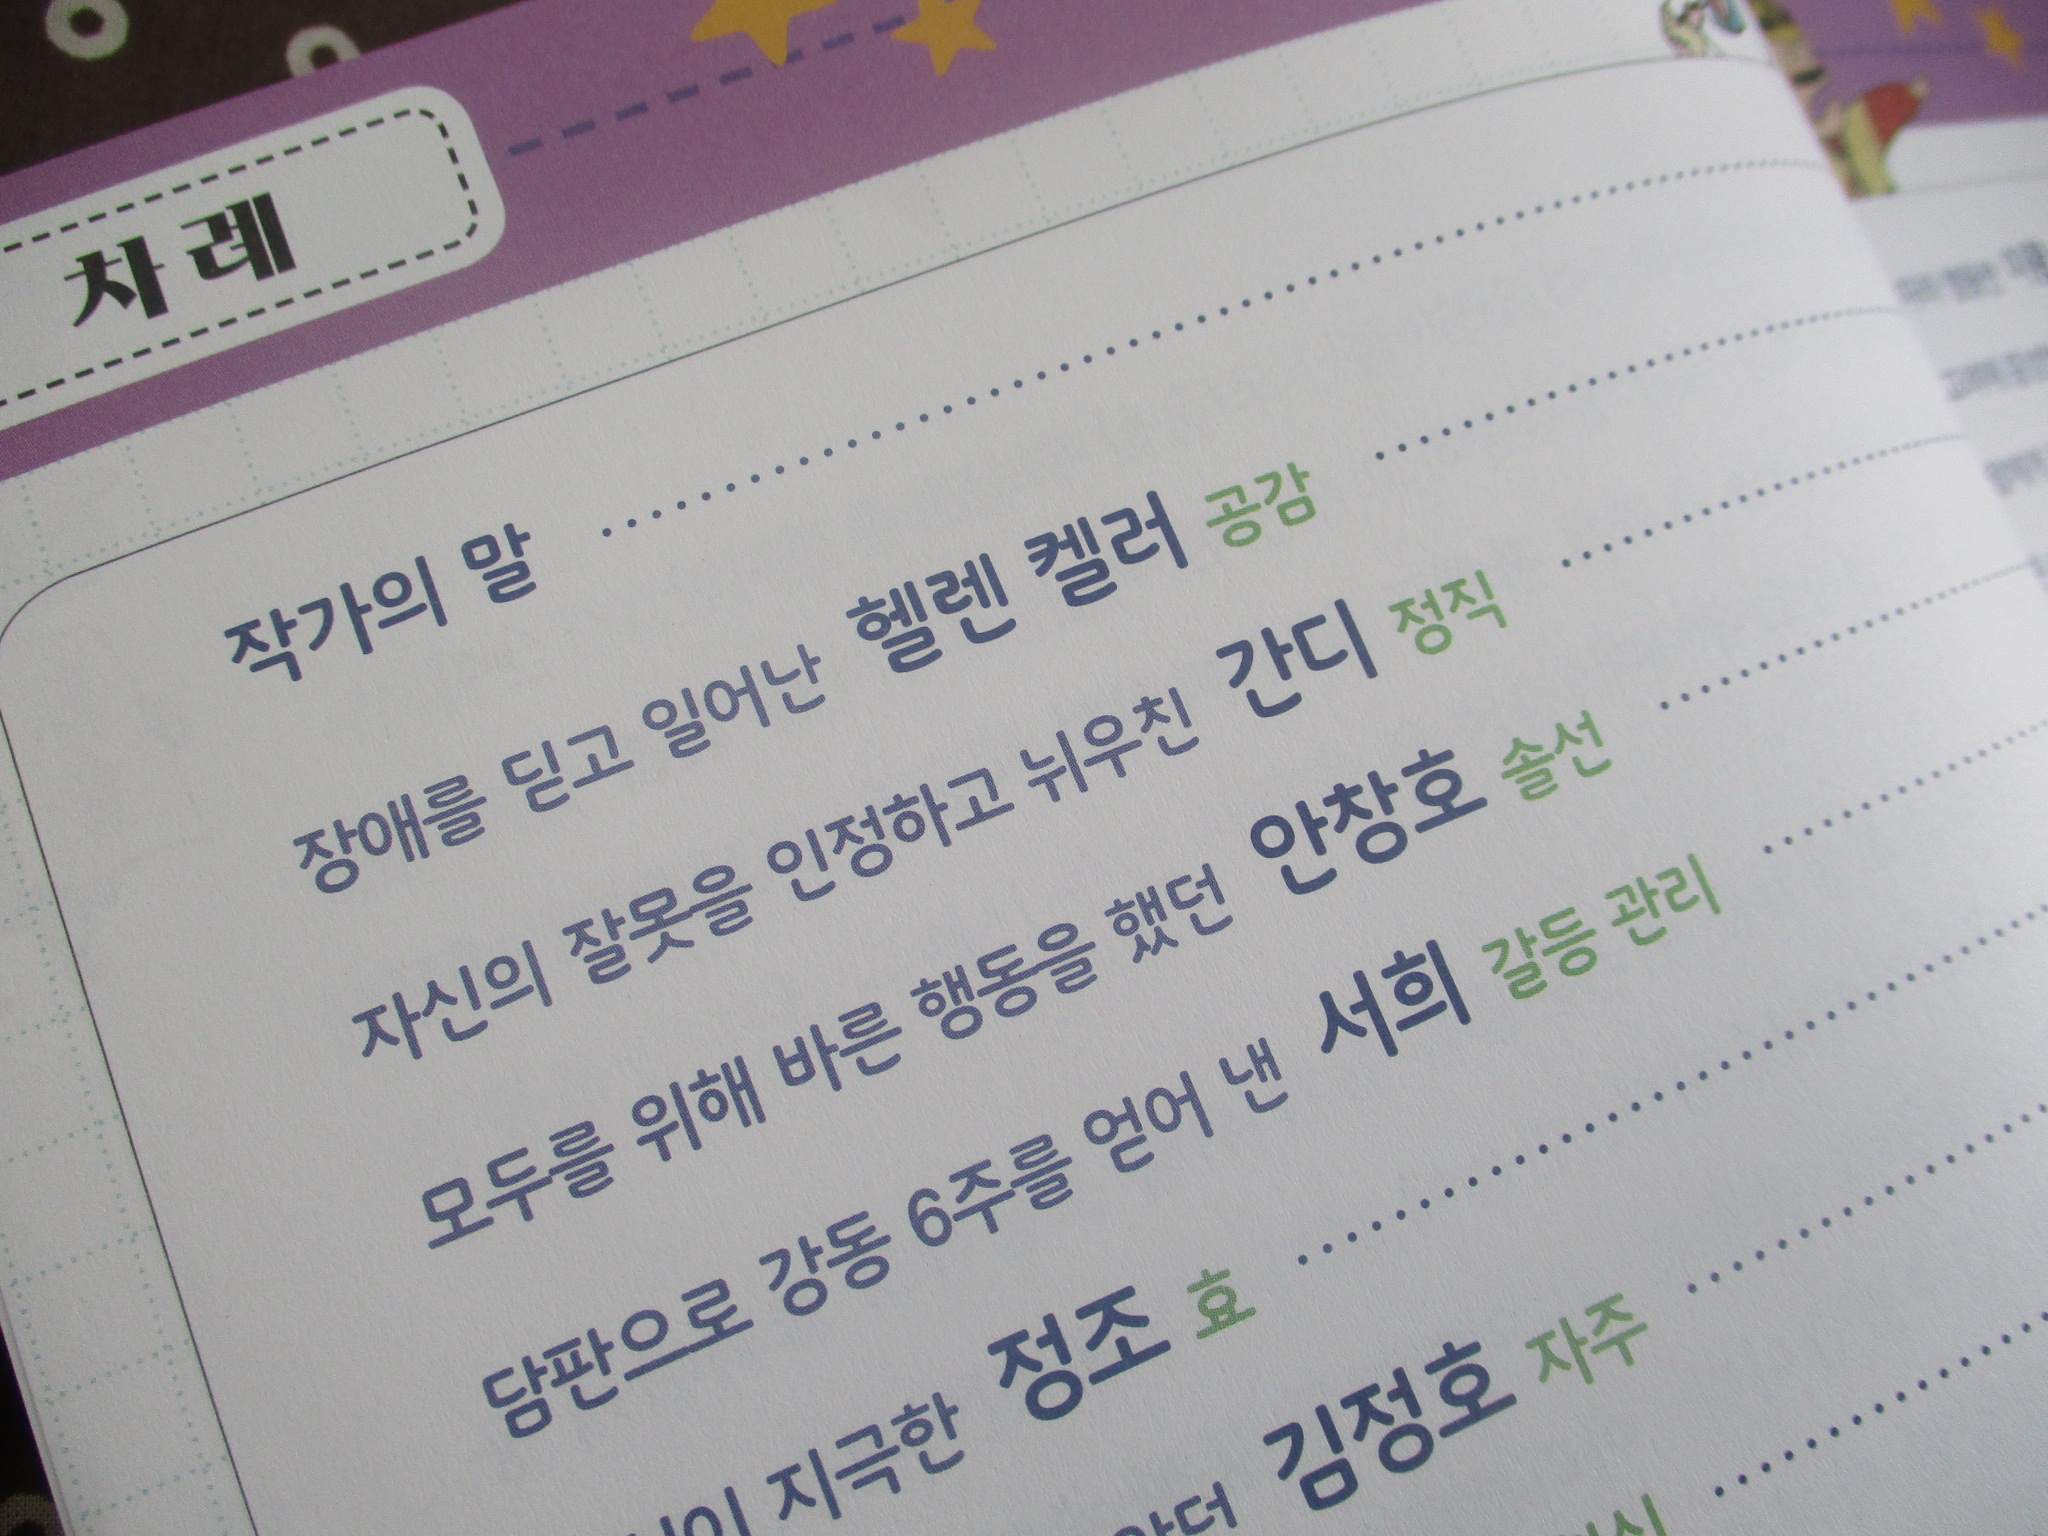 차례
작가의 말
장애를 딛고 일어난 헬렌 켈러 공감
자신의 잘못을 인정하고 뉘우친 간디 정직
모두를 위해 바른 행동을 했던 안창호 솔선
담판으로 강동 6주를 얻어 낸 서희 갈등 관리
지극한 정조 효
김정호 자주